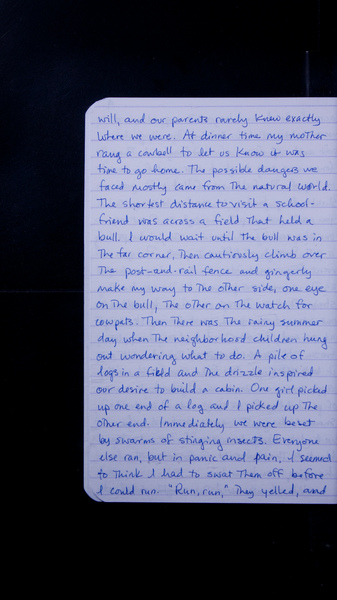 will, and our parents rarely knew exactly
where we were. At dinner time my mother
rang a cowbell to let us know it was
time to go home. The possible dangers we
faced mostly came from the natural world.
The shortest distance to visit a school-
friend was across a field that held a
bull. I would wait until the bull was in
the far corner, then cautiously climb over
the post-and-rail fence and gingerly
make my way to the other side, one eye
on the bull, the other on the watch for
cowpats. Then there was the rainy summer
day when the neighborhood children hung
out wondering what to do. A pile of
logs in a field and the drizzle inspired
our desire to build a cabin. One girl picked
up one end of a log and I picked up the
other end. Immediately we were beset
by swarms of stinging insects. Everyone
else ran, but in panic and pain, I seemed
to think I had to swat them off before
I could run. "Run, run," they yelled, and